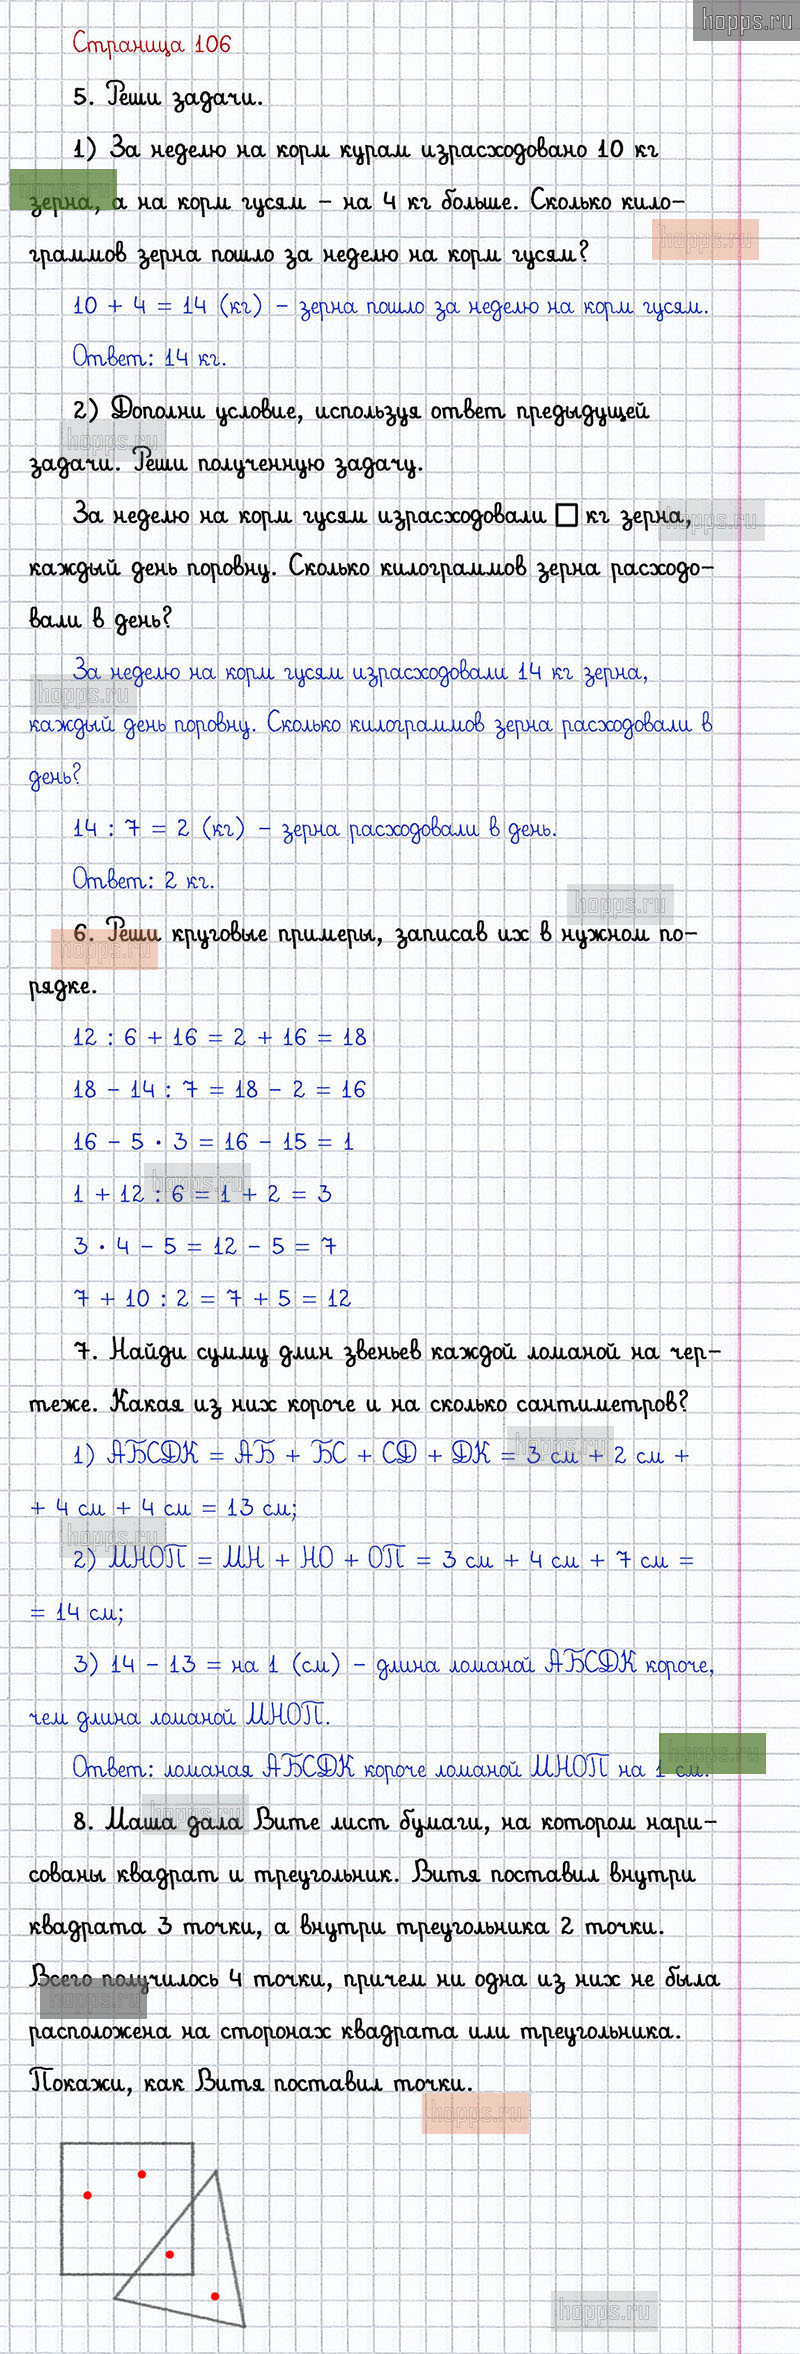 hopps.ru
Страница 106
5. Реши задачи.
1) За неделю на корм курам израсходовано 10 кг
hopps.ru
зерна, а на корм гусям – на 4 кг больше. Сколько кило-
hopps.ru
граммов зерна пошло за неделю на корм гусям?
10 + 4 = 14 (кг) – зерна пошло за неделю на корм гусям.
Ответ: 14 кг.
2) Дополни условие, используя ответ предыдущей
hopps.ru
задачи. Реши полученную задачу.
За неделю на корм гусям израсходовали □ кг зерна,
hopps.ru
каждый день поровну. Сколько килограммов зерна расходо-
вали в день?
За неделю на корм гусям израсходовали 14 кг зерна,
hopps.ru
каждый день поровну. Сколько килограммов зерна расходовали в
день?
14 : 7 = 2 (кг) – зерна расходовали в день.
Ответ: 2 кг.
hopps.ru
6. Реши круговые примеры, записав их в нужном по-
hopps.ru
рядке.
12 : 6 + 16 = 2 + 16 = 18
18 – 14 : 7 = 18 – 2 = 16
16 – 5 · 3 = 16 – 15 = 1
hopps.ru
1 + 12 : 6 = 1 + 2 = 3
3 · 4 – 5 = 12 – 5 = 7
7 + 10 : 2 = 7 + 5 = 12
7. Найди сумму длин звеньев каждой ломаной на чер-
теже. Какая из них короче и на сколько сантиметров?
hopps.ru
1) АБСДК = АБ + БС + СД + ДК = 3 см + 2 см +
+ 4 см + 4 см = 13 см;
hopps.ru
2) МНОП = МН + НО + ОП = 3 см + 4 см + 7 см =
= 14 см;
3) 14 – 13 = на 1 (см) – длина ломаной АБСДК короче,
чем длина ломаной МНОП.
hopps.ru
Ответ: ломаная АБСДК короче ломаной МНОП на 1 см.
hopps.ru
8. Маша дала Вите лист бумаги, на котором нари-
сованы квадрат и треугольник. Витя поставил внутри
квадрата 3 точки, а внутри треугольника 2 точки.
Всего получилось 4 точки, причем ни одна из них не была
hopps.ru
расположена на сторонах квадрата или треугольника.
Покажи, как Витя поставил точки.
hopps.ru
hopps.ru